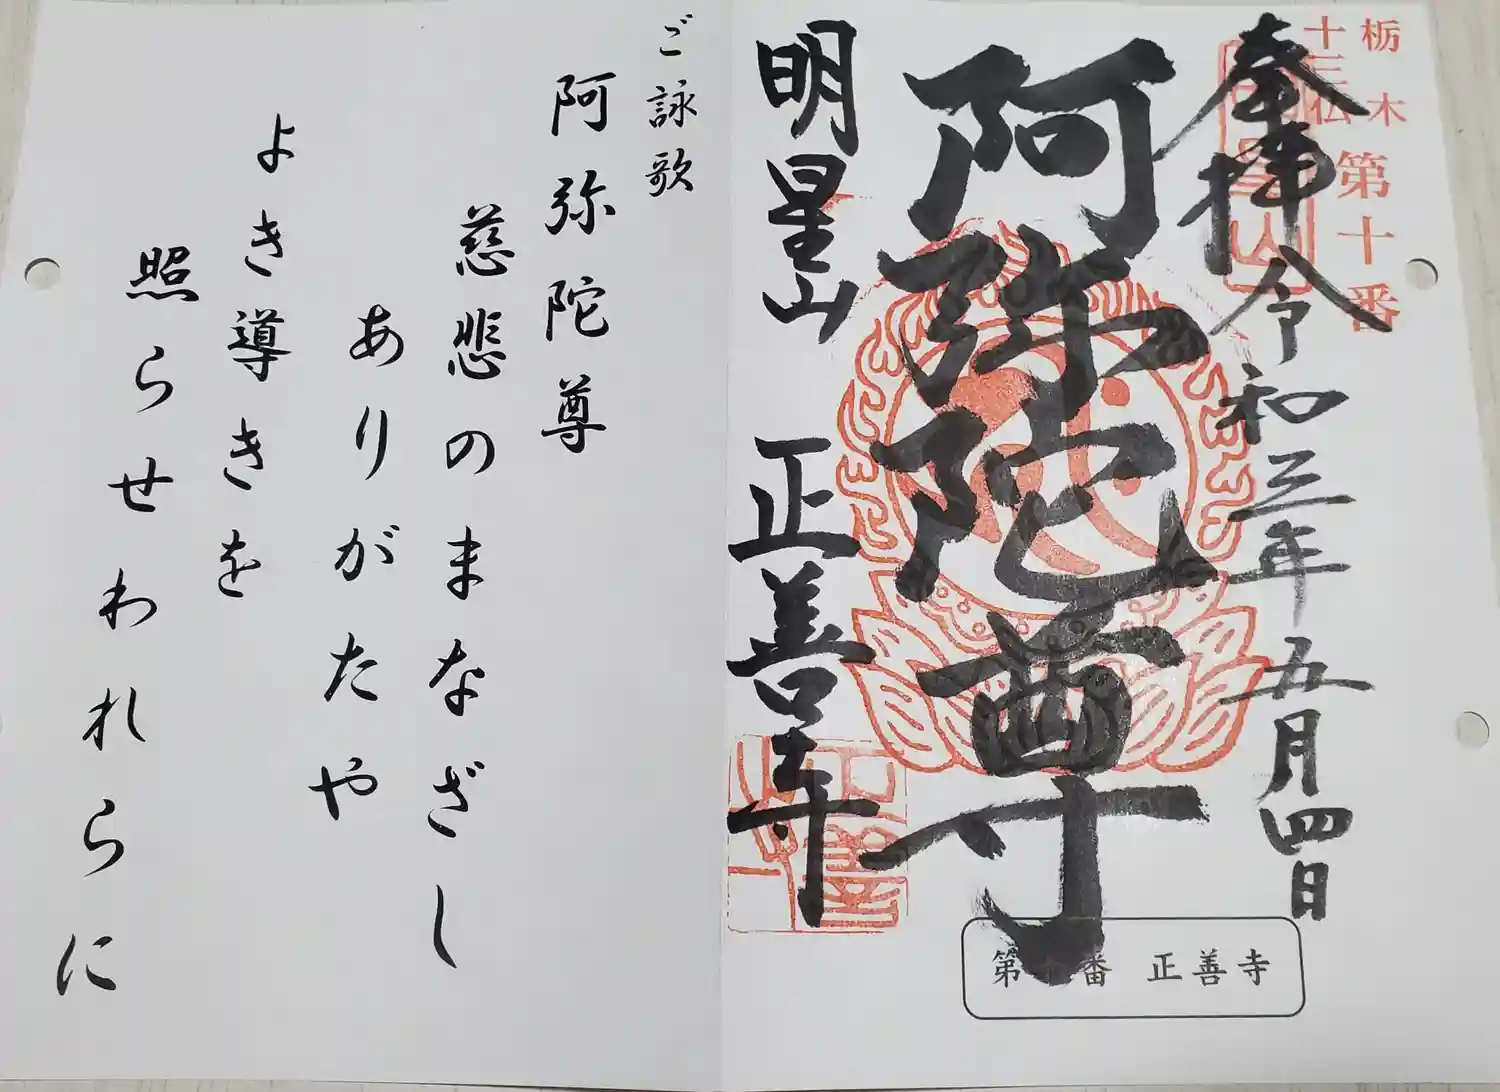 栃木
十三仏
第十番
奉拝 令和三年五月四日
阿弥陀尊
明星山 正善寺
第十番 正善寺
ご詠歌
阿弥陀尊
慈悲のまなざし
ありがたや
よき導きを
照らせわれらに